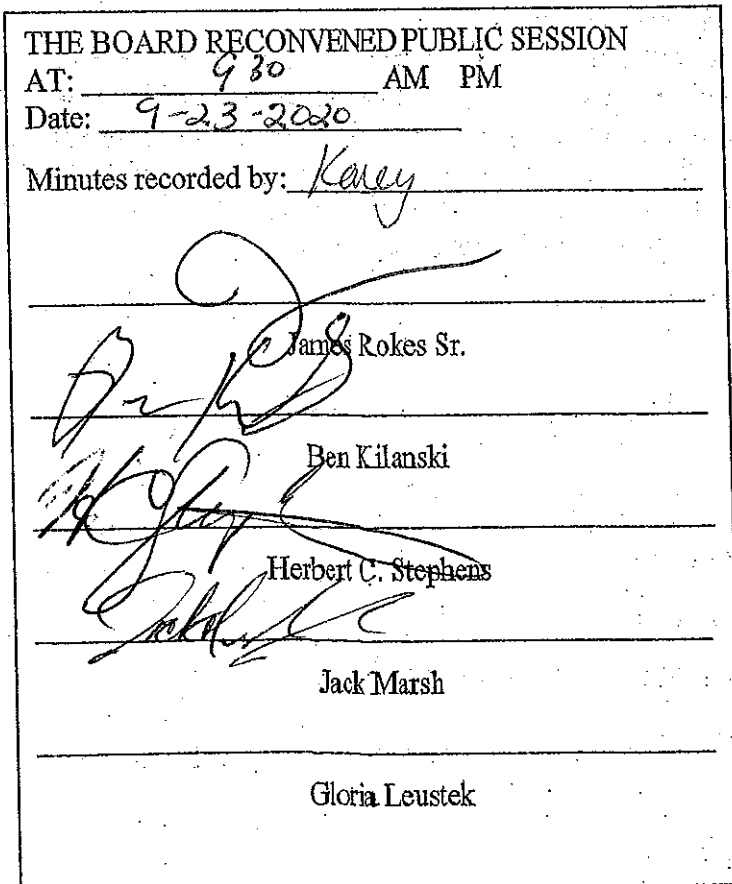 THE BOARD RECONVENED PUBLIC SESSION
AT: 9 30 AM PM
Date: 9-23-2020
Minutes recorded by:
James Rokes Sr.
Ben Kilanski
Herbert C. Stephens
Jack Marsh
Gloria Leustek